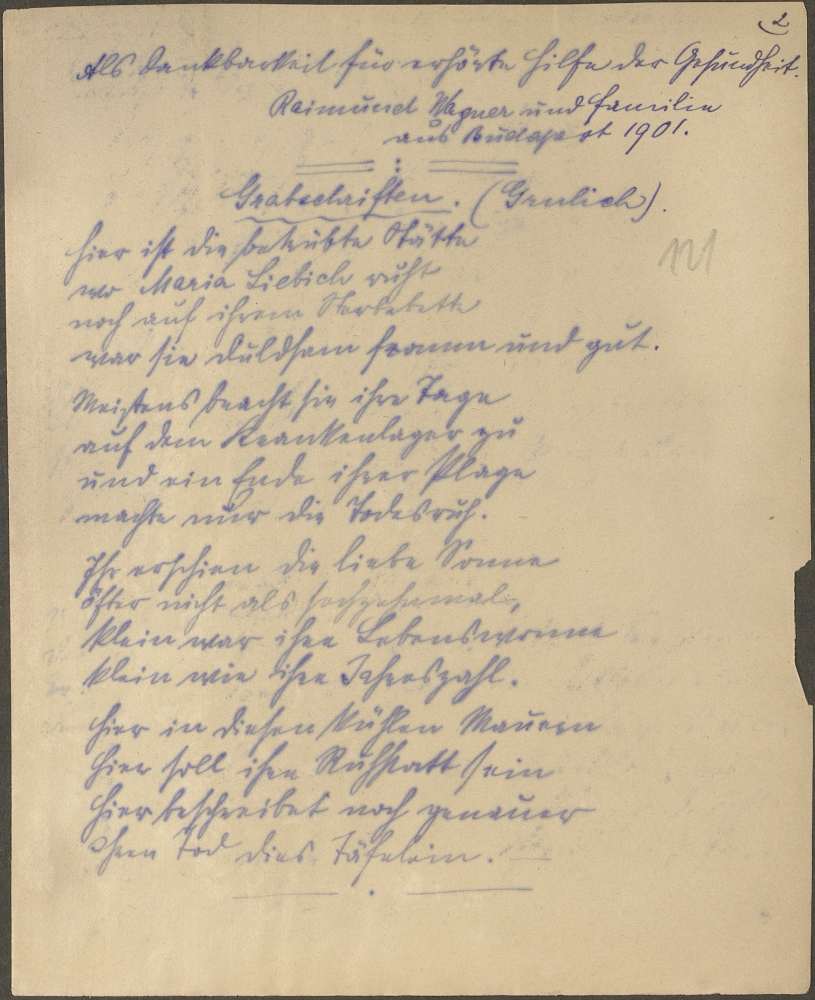 2
Als Dankbarkeit für erhörte Hilfe der Gesundheit.
Raimund Wagner und Familie
aus Budapest 1901.
Grabschriften. (Grulich).
Hier ist die betrübte Stätte
wo Maria Liebich ruht
noch auf ihrem Sterbebette
war sie duldsam fromm und gut.
121
Meistens bracht sie ihre Tage
auf dem Krankenlager zu
und ein Ende ihrer Plage
machte nur die Todesruh.
Ihr erschien die liebe Sonne
öfter nicht als sechzehnmal,
klein war ihre Lebenswonne
klein wie ihre Jahreszahl.
Hier in diesen kühlen Mauern
Hier soll ihre Ruhstatt sein
Hier beschreibet noch genauer
Ihren Tod dies Täfelein.